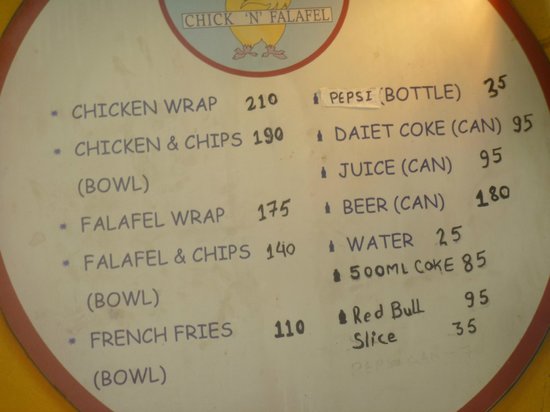 CHICK 'N' FALAFEL
CHICKEN WRAP 210
CHICKEN & CHIPS 190
(BOWL)
FALAFEL WRAP 175
FALAFEL & CHIPS 140
(BOWL)
FRENCH FRIES 110
(BOWL)
PEPSI (BOTTLE) 35
DAIET COKE (CAN) 95
JUICE (CAN) 95
BEER (CAN) 180
WATER 25
500ML COKE 85
Red Bull 95
Slice 35
PEPSI CAN